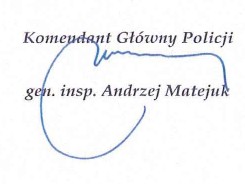 Komendant Główny Policji
gen. insp. Andrzej Matejuk